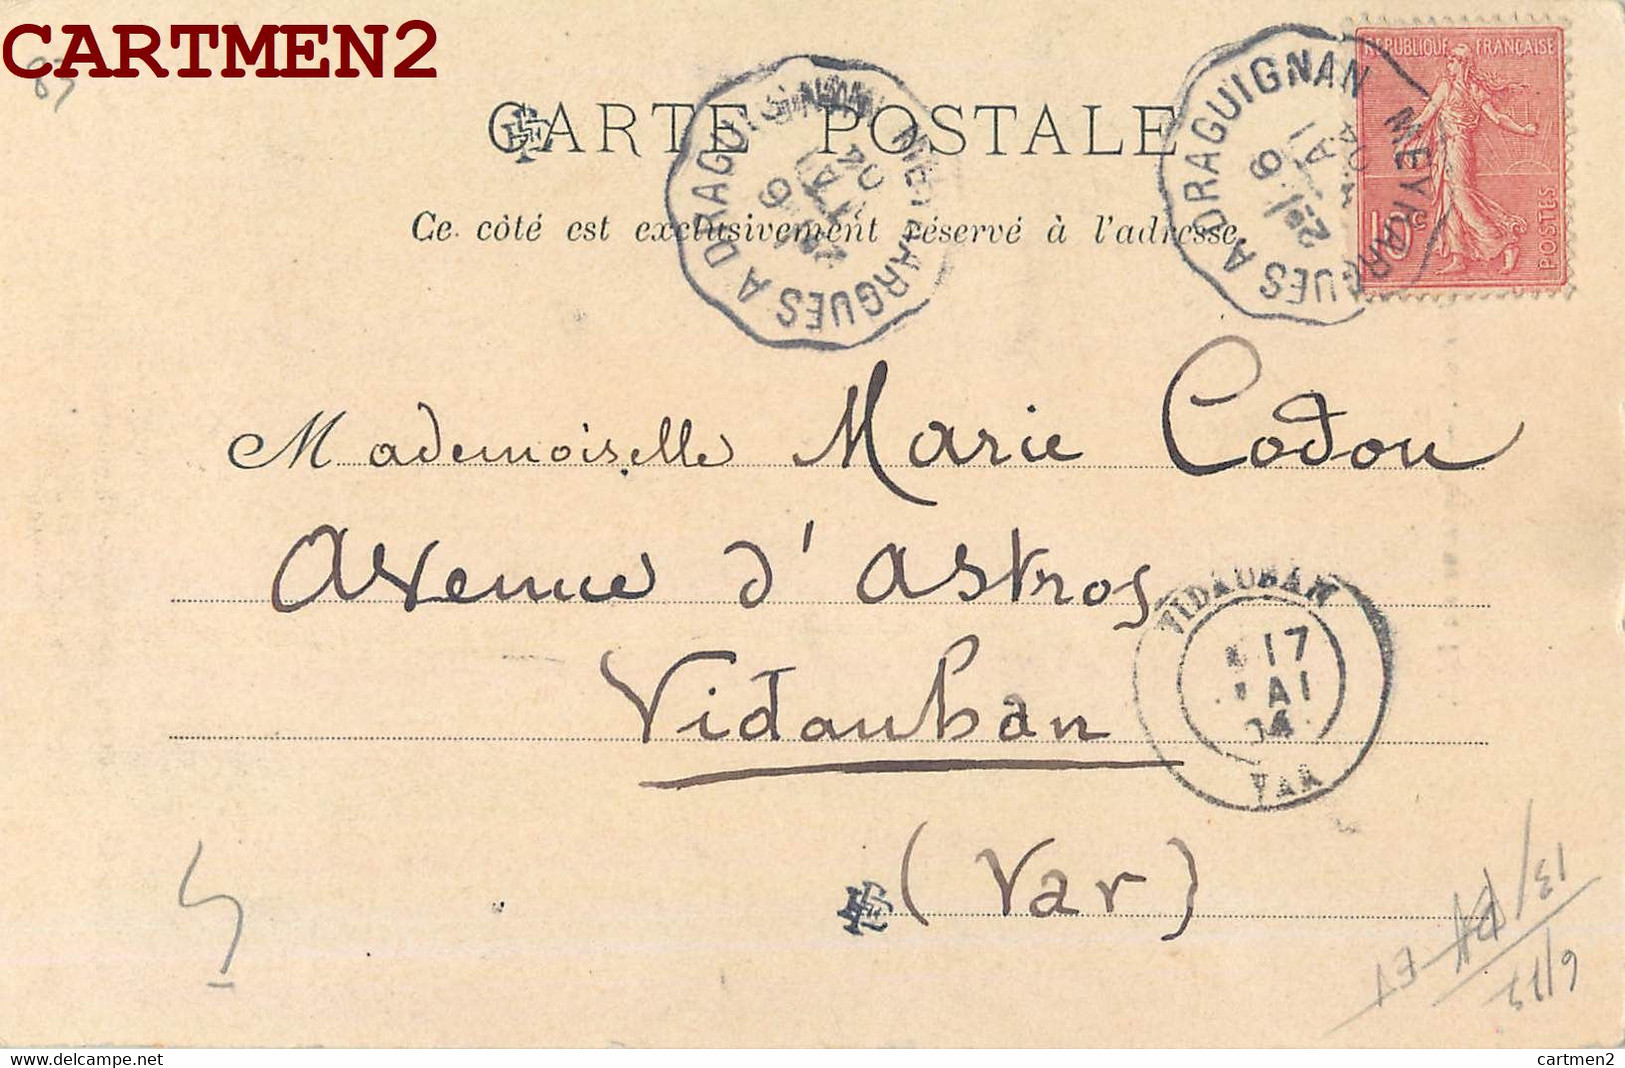 CARTMEN2
83
CARTE POSTALE
Ce côté est exclusivement réservé à l'adresse.
MEYRARGUES A DRAGUIGNAN
6
MAI
04
MEYRARGUES A DRAGUIGNAN
2e/6
MAI
04
REPUBLIQUE FRANÇAISE
10c
POSTES
Mademoiselle Marie Codou
Avenue d'astros
Vidauban
(Var)
VIDAUBAN
17
MAI
04
VAR
13/
6/13
cartmen2